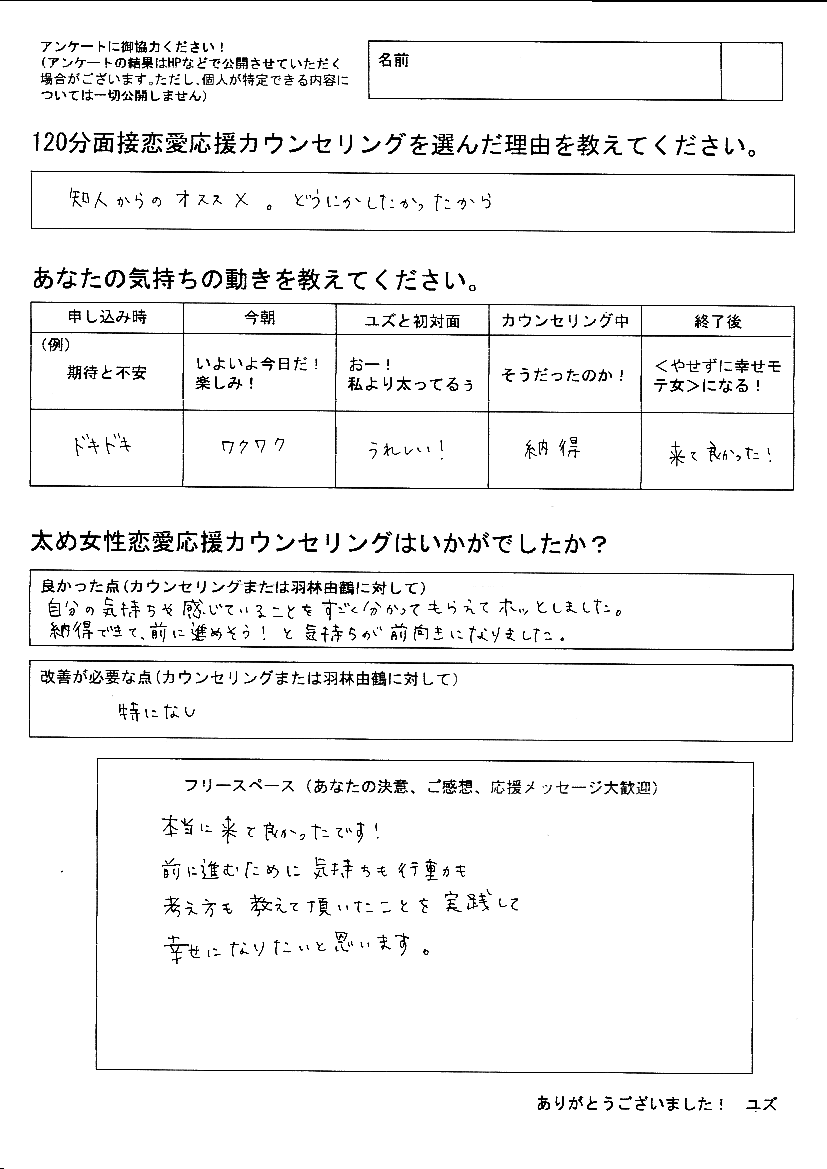 アンケートに御協力ください！
(アンケートの結果はHPなどで公開させていただく
場合がございます。ただし、個人が特定できる内容に
ついては一切公開しません)
名前
120分面接恋愛応援カウンセリングを選んだ理由を教えてください。
知人からのオススメ。どうにかしたかったから
あなたの気持ちの動きを教えてください。
申し込み時 今朝 ユズと初対面 カウンセリング中 終了後
(例)
期待と不安 いよいよ今日だ！ おー！ そうだったのか！ ＜やせずに幸せモ
楽しみ！ 私より太ってるぅ テ女＞になる！
ドキドキ ワクワク うれしい！ 納得 来て良かった！
太め女性恋愛応援カウンセリングはいかがでしたか？
良かった点(カウンセリングまたは羽林由鶴に対して)
自分の気持ちや感じていることをすごく分かってもらえてホッとしました。
納得できて、前に進めそう！と気持ちが前向きになりました。
改善が必要な点(カウンセリングまたは羽林由鶴に対して)
特になし
フリースペース（あなたの決意、ご感想、応援メッセージ大歓迎）
本当に来て良かったです！
前に進むために気持ちも行動も
考え方も教えて頂いたことを実践して
幸せになりたいと思います。
ありがとうございました！ ユズ